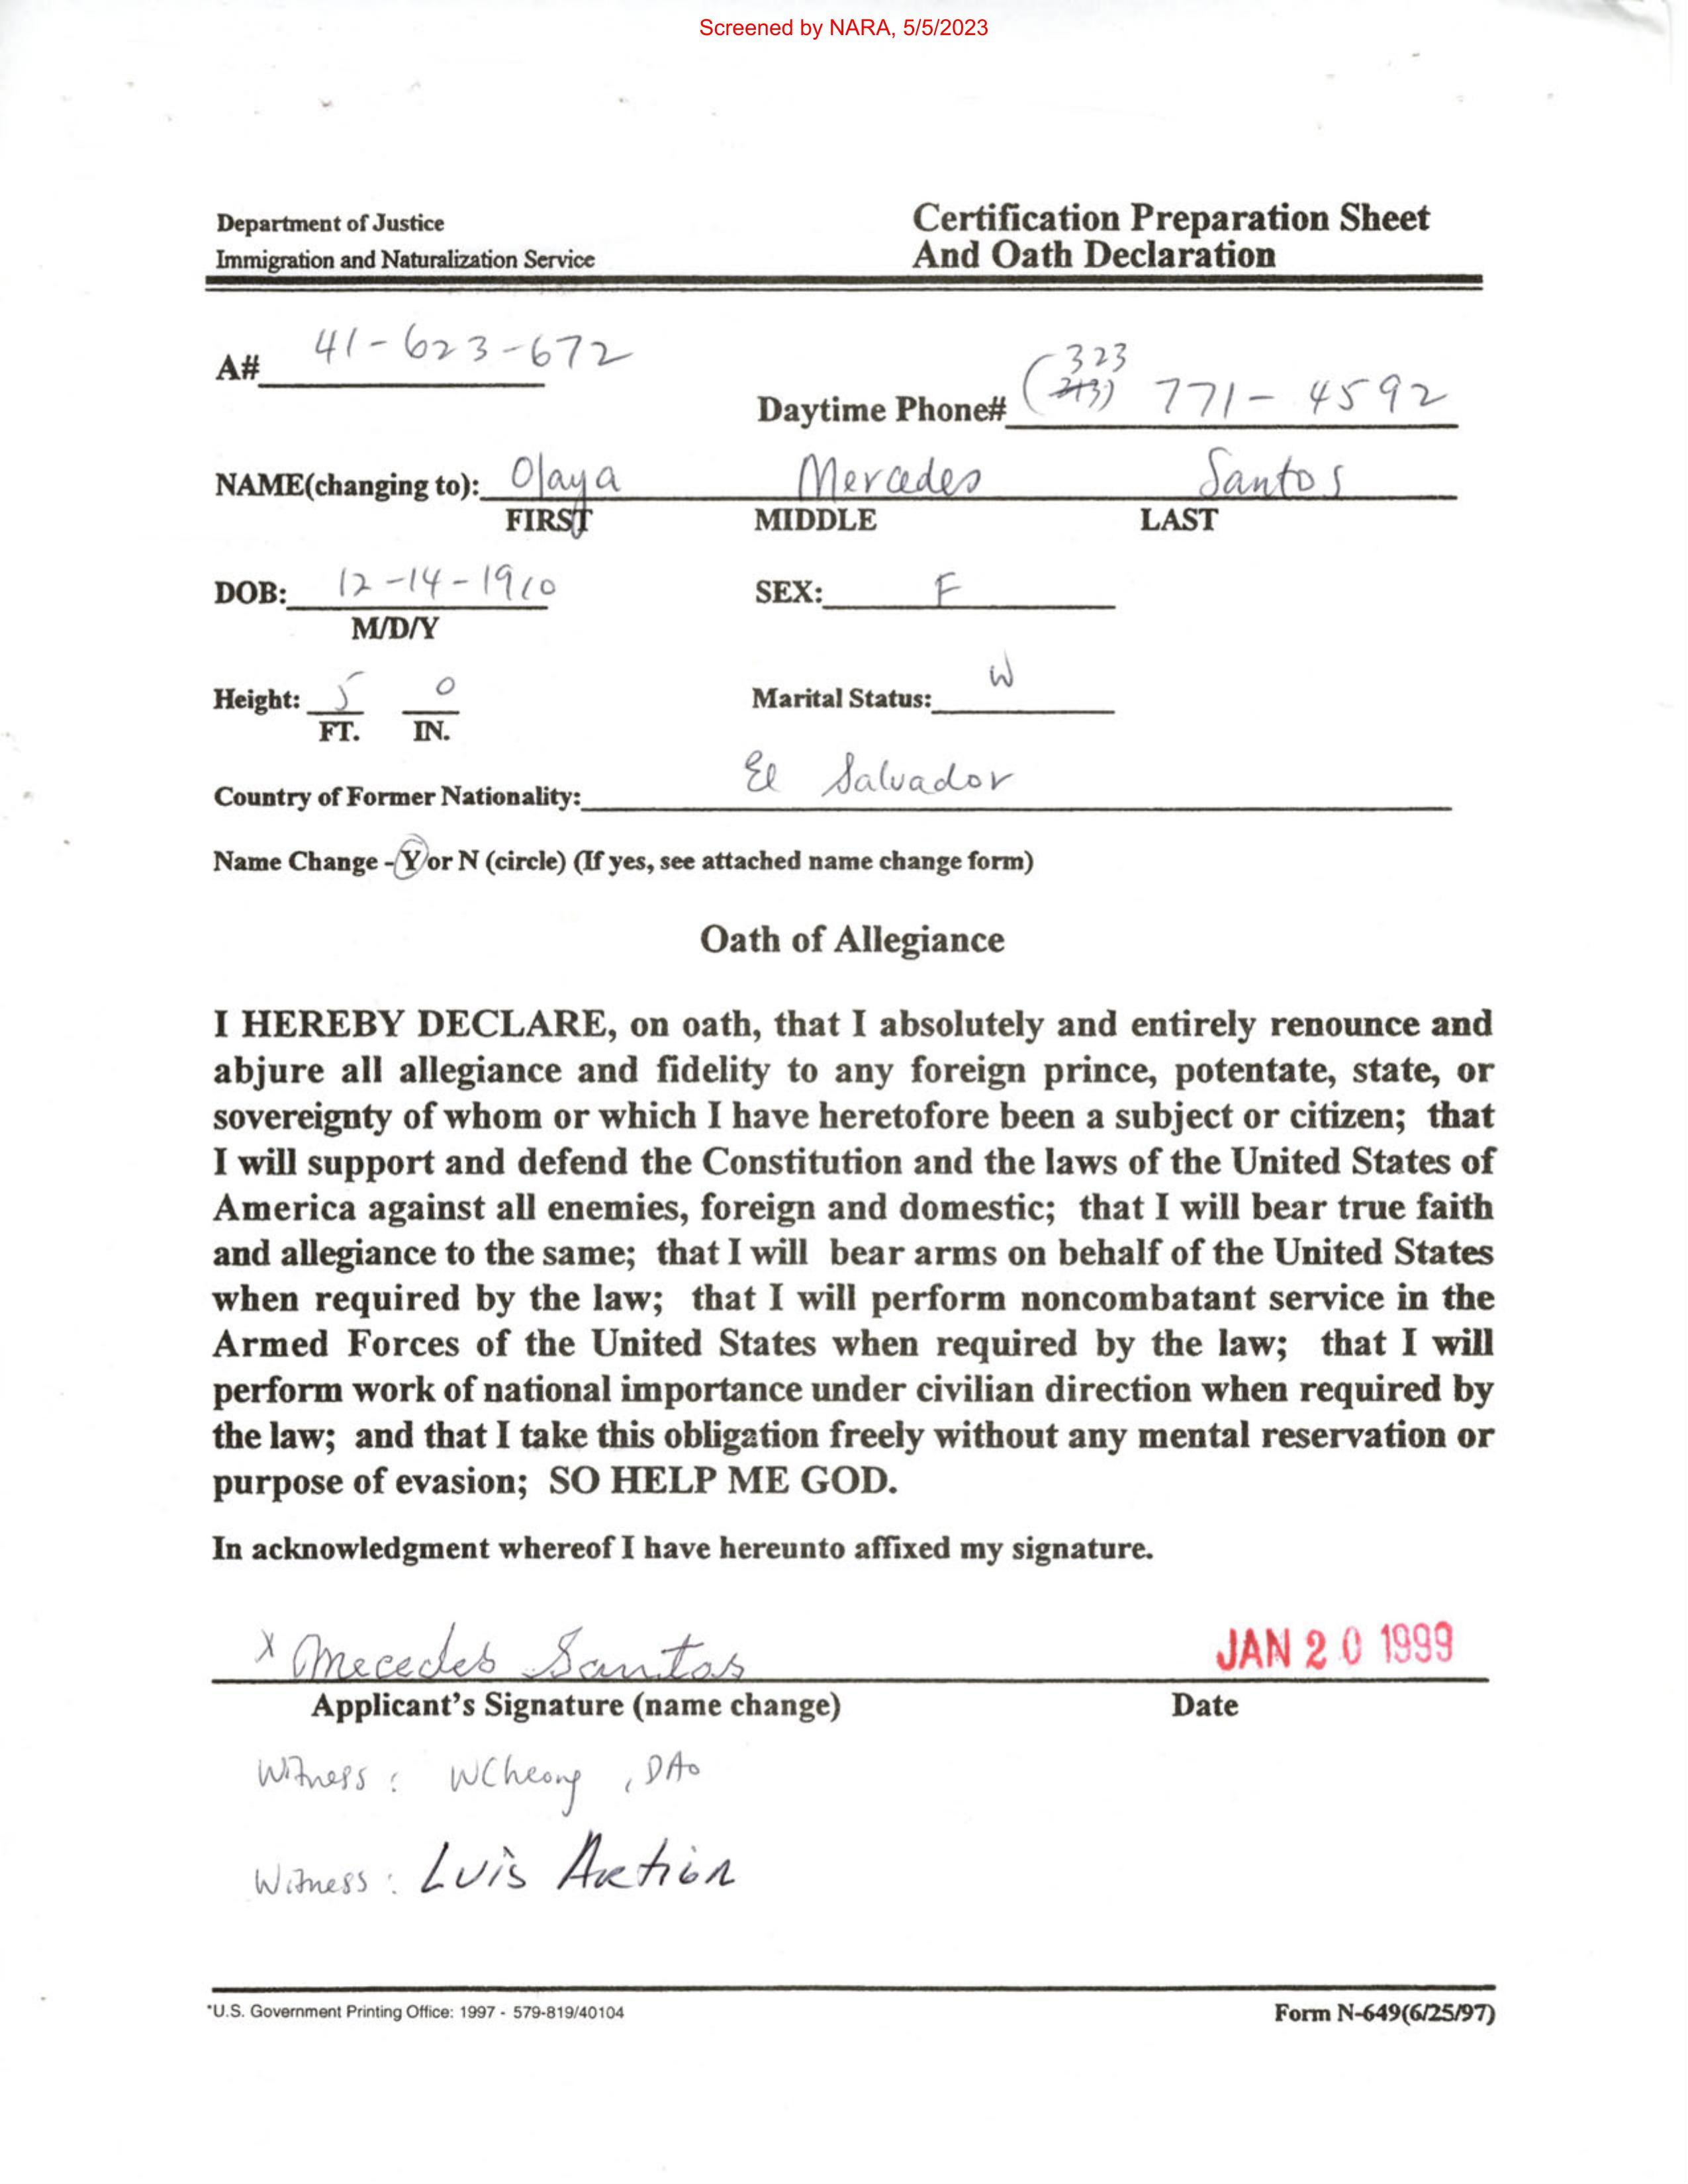 Screened by NARA, 5/5/2023
Department of Justice
Immigration and Naturalization Service
Certification Preparation Sheet
And Oath Declaration
A# 41-623-672
Daytime Phone# (323 771-4592
NAME(changing to): Olaya Mercedes Santos
FIRST MIDDLE LAST
DOB: 12-14-1910 SEX: F
M/D/Y
Height: 5 0 Marital Status: W
FT. IN.
Country of Former Nationality: El Salvador
Name Change - Y or N (circle) (If yes, see attached name change form)
Oath of Allegiance
I HEREBY DECLARE, on oath, that I absolutely and entirely renounce and
abjure all allegiance and fidelity to any foreign prince, potentate, state, or
sovereignty of whom or which I have heretofore been a subject or citizen; that
I will support and defend the Constitution and the laws of the United States of
America against all enemies, foreign and domestic; that I will bear true faith
and allegiance to the same; that I will bear arms on behalf of the United States
when required by the law; that I will perform noncombatant service in the
Armed Forces of the United States when required by the law; that I will
perform work of national importance under civilian direction when required by
the law; and that I take this obligation freely without any mental reservation or
purpose of evasion; SO HELP ME GOD.
In acknowledgment whereof I have hereunto affixed my signature.
x Mecedes Santos JAN 20 1999
Applicant's Signature (name change) Date
Witness: WCheong, DAO
Witness: Luis
*U.S. Government Printing Office: 1997 - 579-819/40104 Form N-649(6/25/97)